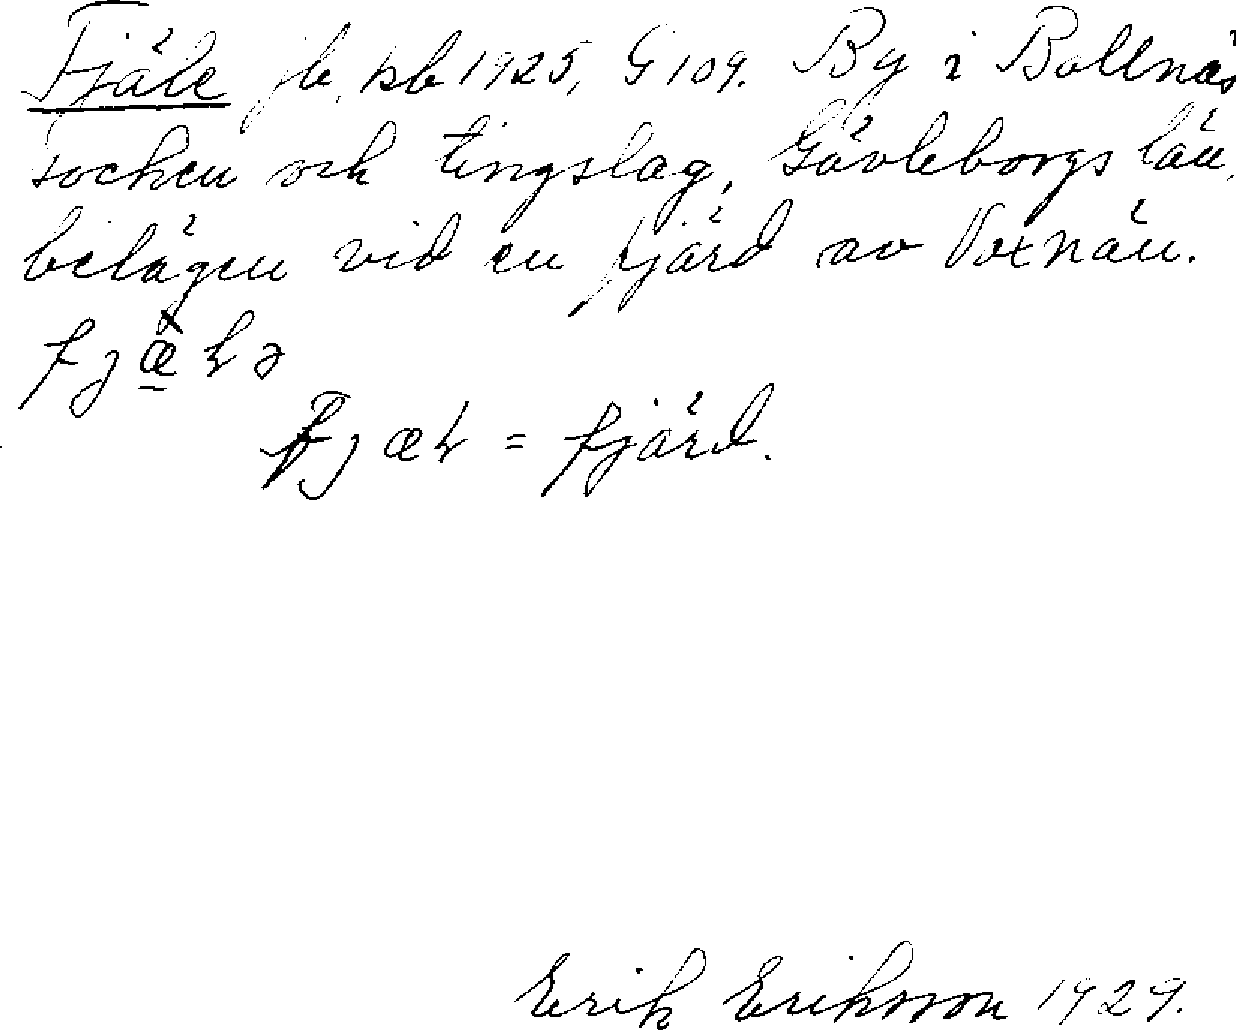 Fjäle jb, kb 1925, G 109. By i Bollnäs
socken och tingslag, Gävleborgs län,
belägen vid en fjärd av Voxnan.
fjæ̀ɽə
fjæɽ = fjärd.
Erik Eriksson 1929.